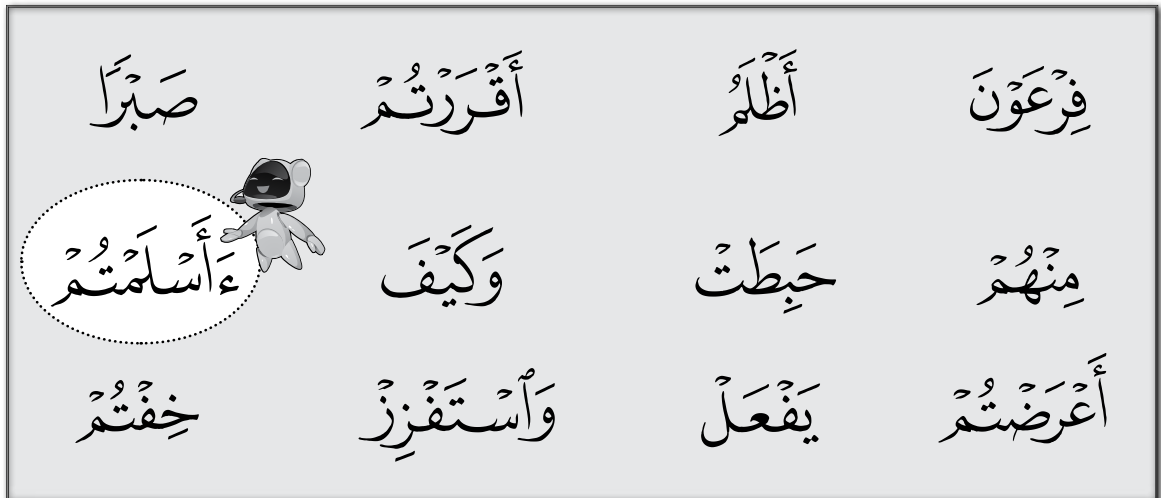 فِرۡعَوۡنَ أَظۡلَمُ أَقۡرَرۡتُمۡ صَبۡرًا
مِنۡهُمۡ حَبِطَتۡ وَكَيۡفَ ءَأَسۡلَمۡتُمۡ
أَعۡرَضۡتُمۡ يَفۡعَلۡ وَٱسۡتَفۡزِزۡ خِفۡتُمۡ